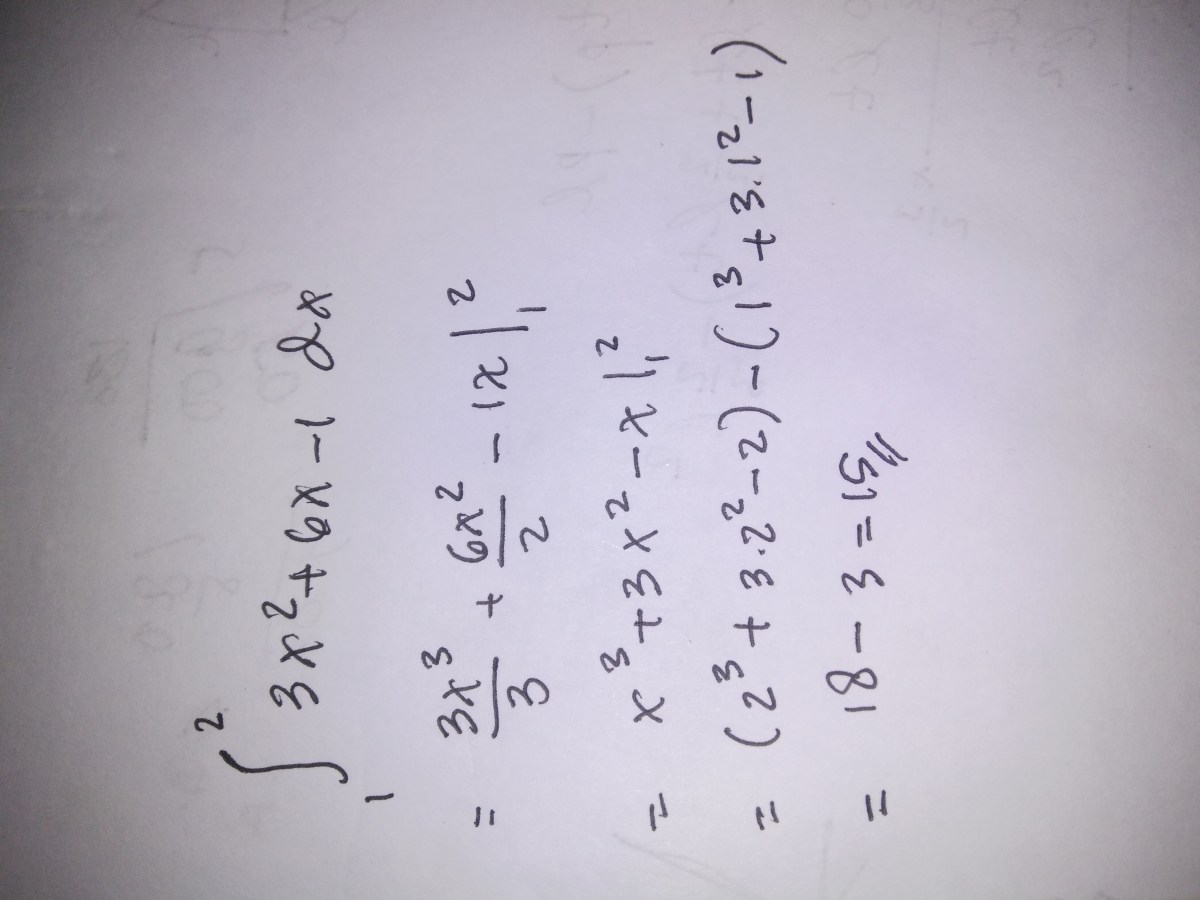 ∫₁² 3x² + 6x - 1 dx
= 3x³/3 + 6x²/2 - 1x |₁²
= x³ + 3x² - x |₁²
= (2³ + 3·2² - 2) - (1³ + 3·1² - 1)
= 18 - 3 = 15//